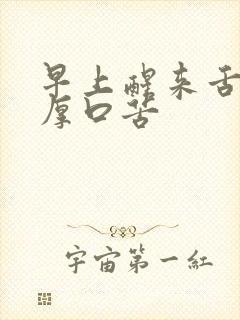 早上醒来舌
厚口苦
宇宙第一紅